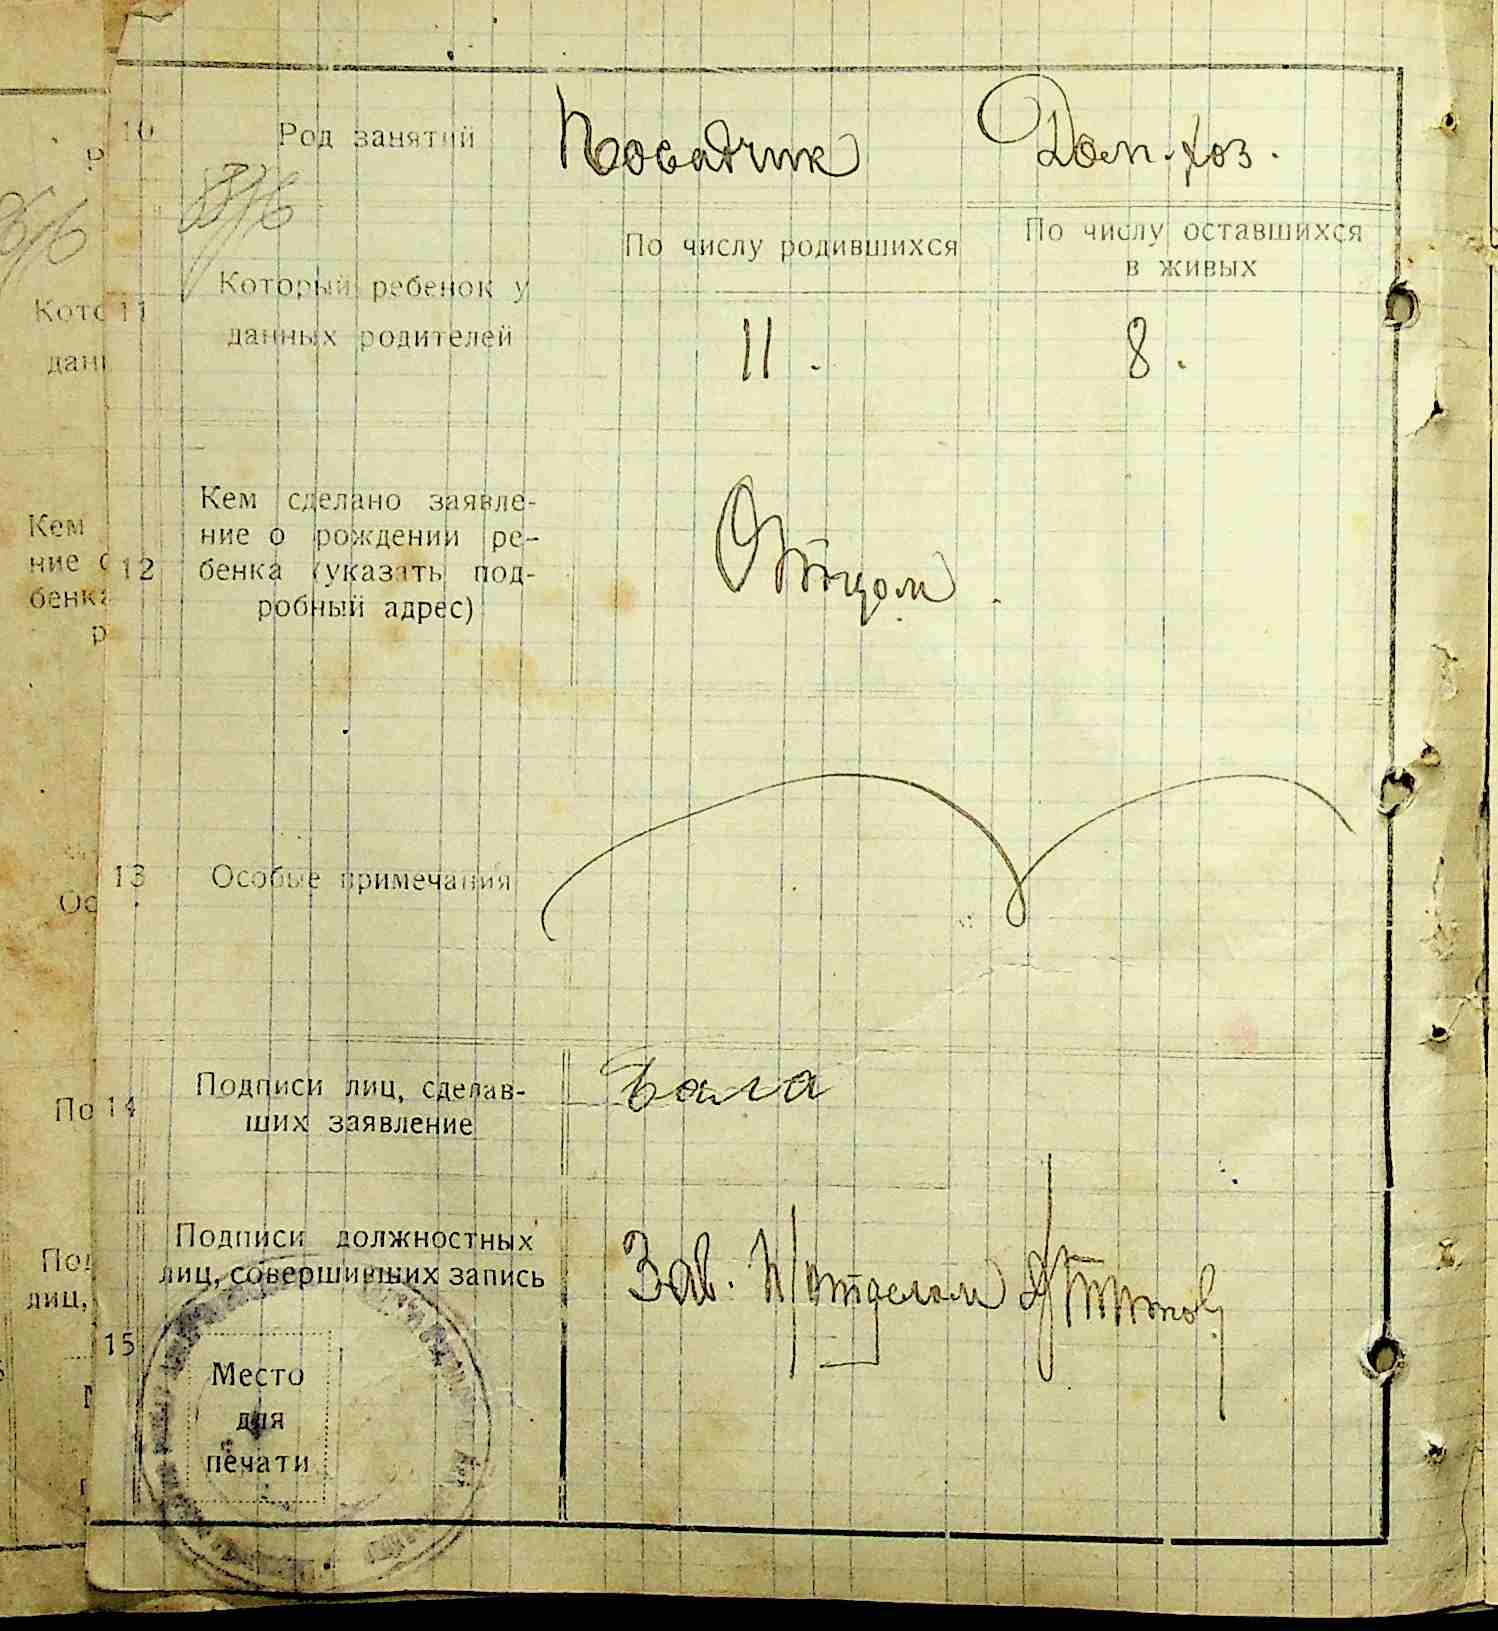 10 Род занятий Посадчик Дом. хоз.
По числу родившихся По числу оставшихся
в живых
11 Который ребенок у
данных родителей 11. 8.
Кем сделано заявле-
ние о рождении ре-
12 бенка (указать под-
робный адрес)
Отцом.
13 Особые примечания
14 Подписи лиц, сделав-
ших заявление
Подписи должностных
лиц, совершивших запись Зав. п/отделом
15
Место
для
печати
Кем
ние
бенка